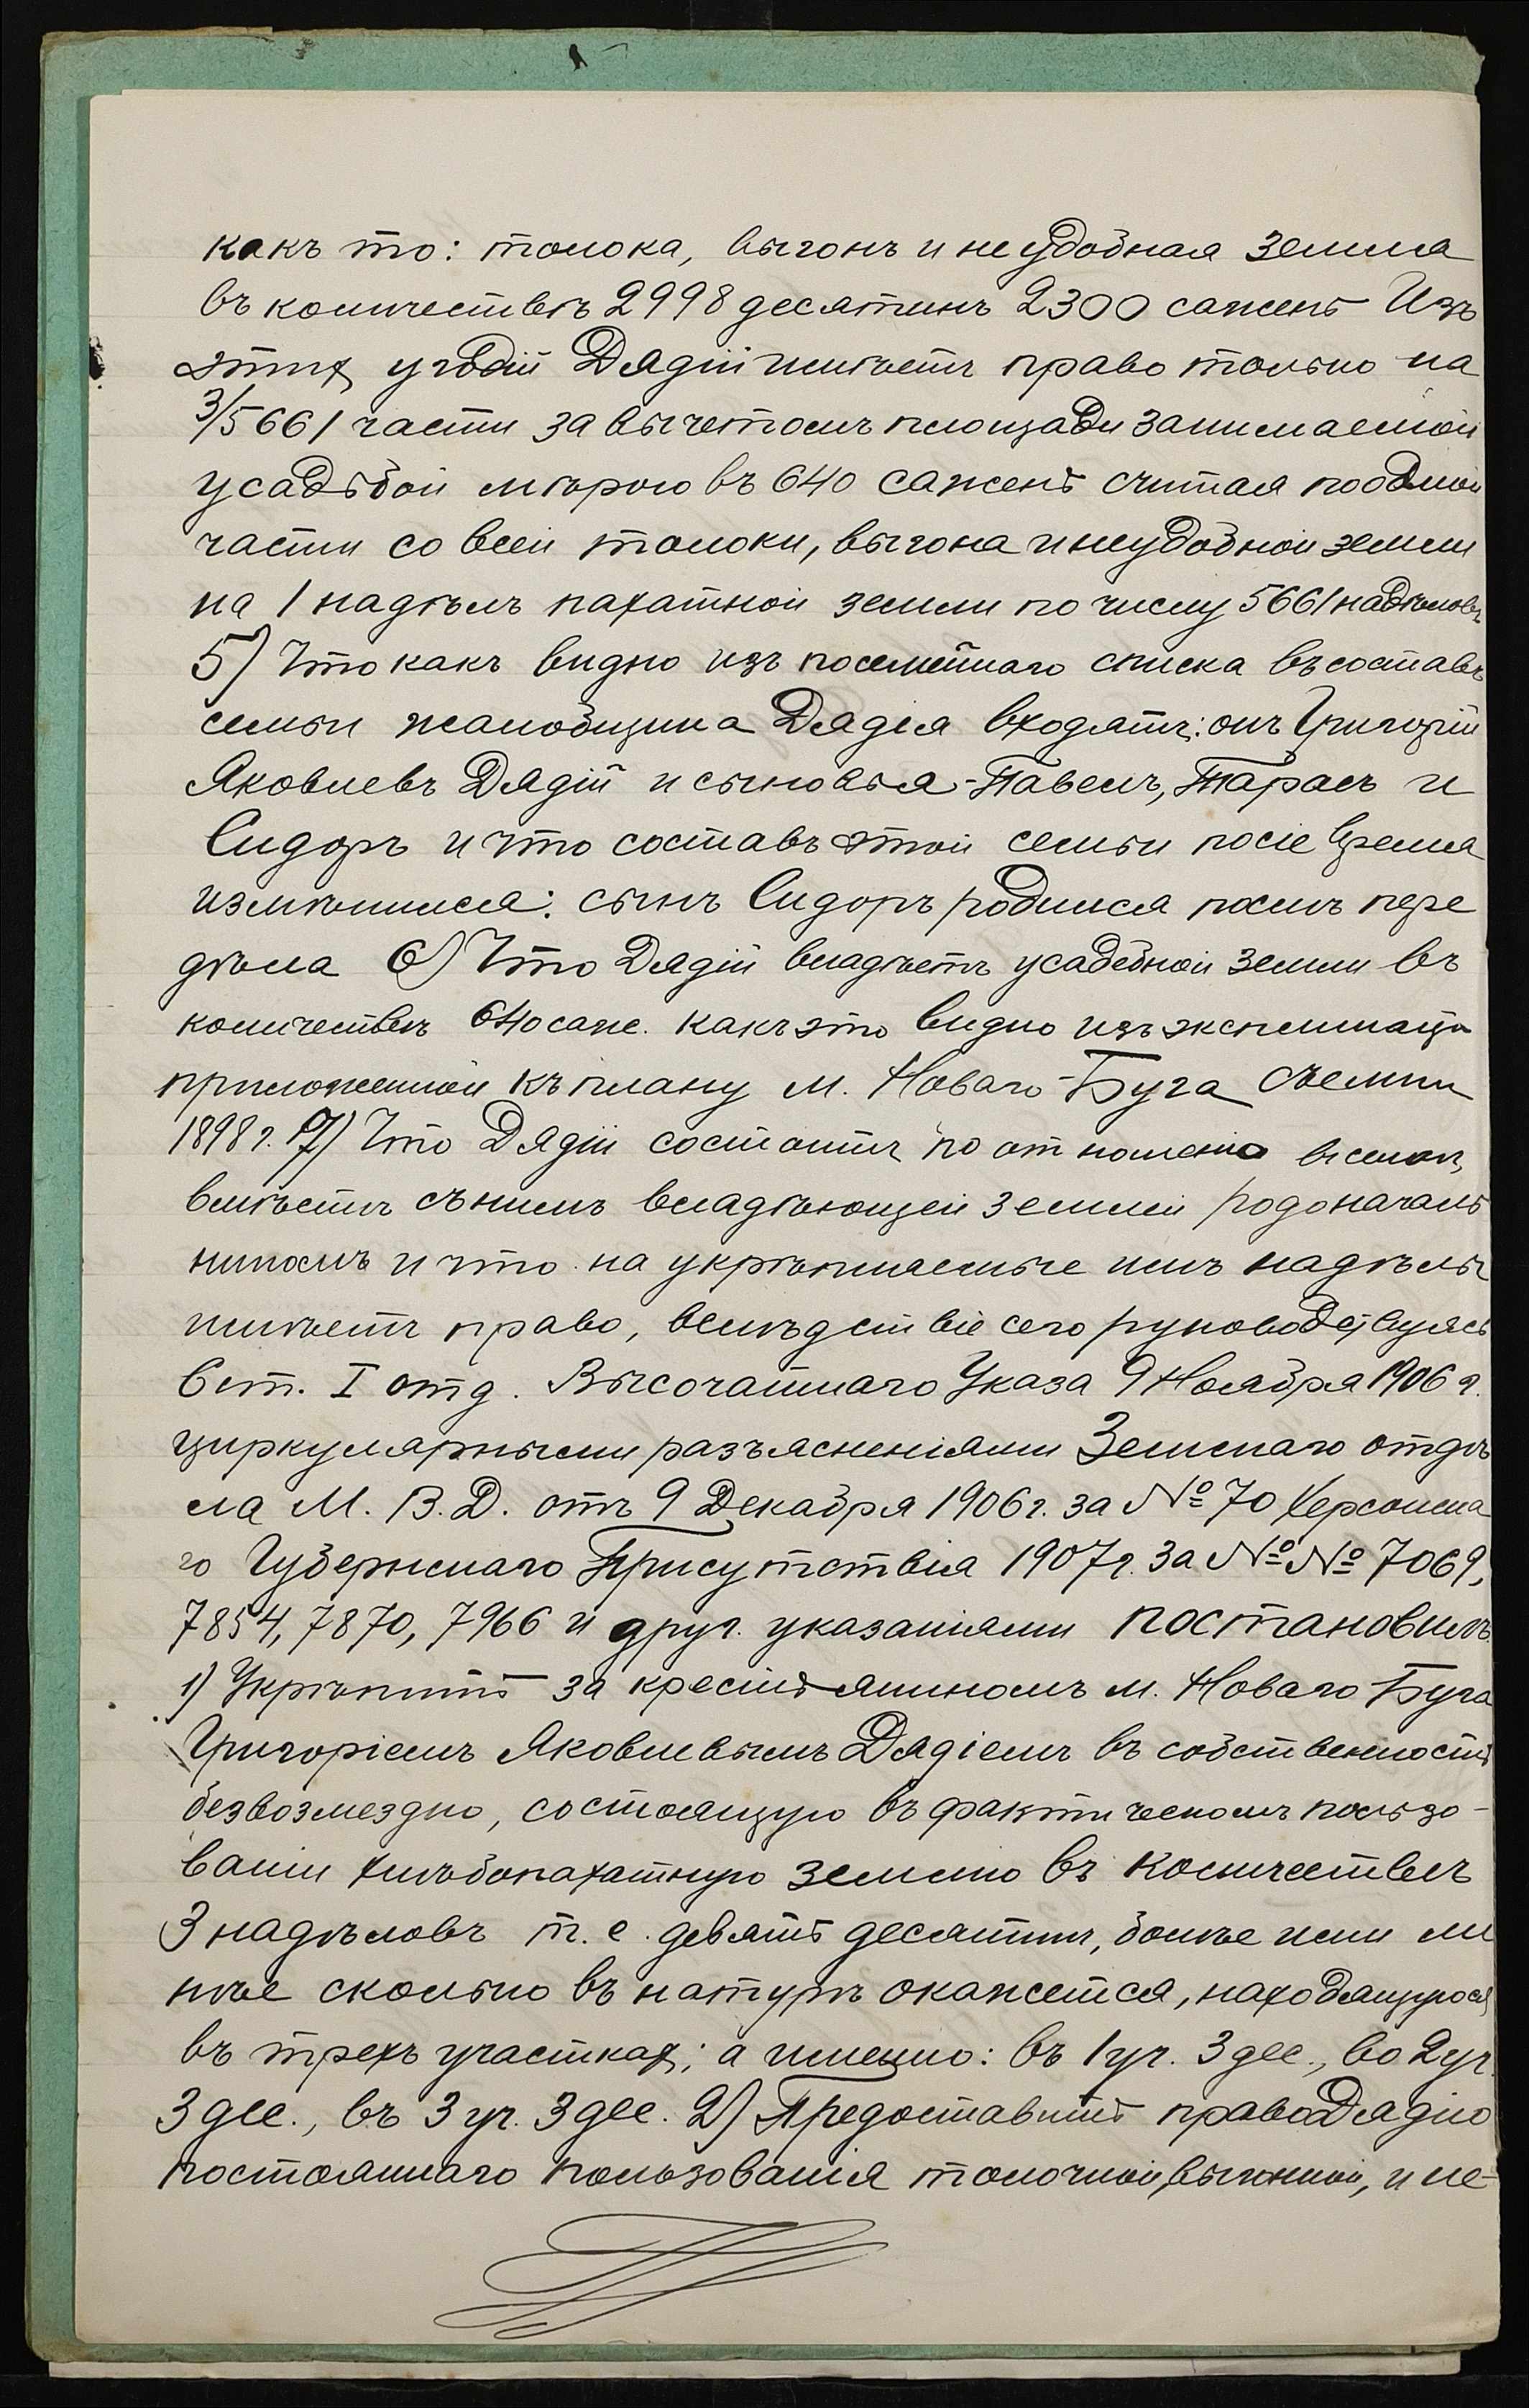 какъ то: толока, выгонъ и неудобная земля
въ количествѣ 2998 десятинъ 2300 сажень Изъ
этих угодій Дядій имѣетъ право только на
3/5661 части за вычетомъ площади занимаемой
усадьбой мѣрою въ 640 сажень считая по одной
части со всей толоки, выгона и неудобной земли
на 1 надѣлъ пахатной земли по числу 5661 надѣловъ
5) Что какъ видно изъ посемейнаго списка въ составъ
семьи жалобщика Дядія входятъ: онъ Григорій
Яковлевъ Дядій и сыновья - Павелъ, Тарасъ и
Сидоръ и что составъ этой семьи после время
измѣнился: сынъ Сидоръ родился послѣ пере
дѣла 6) Что Дядій владѣетъ усадебной земли въ
количествѣ 640 саж. какъ это видно изъ экспликаціи
приложенной къ плану м. Новаго-Буга съемки
1898 г. 7) Что Дядій состоитъ по отношенію всемъ,
вмѣстѣ съ нимъ владѣющей землей родоначаль
никомъ и что на укрѣпляемые имъ надѣлы
имѣетъ право, вслѣдствіе сего руководствуясь
6 ст. I отд. Высочайшаго Указа 9 Ноября 1906 г.
циркулярными разъясненіями Земскаго отдѣ
ла М. В. Д. отъ 9 Декабря 1906 г. за № 70 Херсонска
го Губернскаго Присутствія 1907 г. за №№ 7069,
7854, 7870, 7966 и друг. указаніями постановилъ
1) Укрѣпить за крестьяниномъ м. Новаго Буга
Григоріемъ Яковлевымъ Дядіемъ въ собственность
безвозмездно, состоящую въ фактическомъ пользо-
ваніи хлѣбопахатную землю въ количествѣ
3 надѣловъ т. е. девять десятинъ, болѣе или ме
нѣе сколько въ натурѣ окажется, находящуюся
въ трехъ участках; а именно: въ 1 уч. 3 дес., во 2 уч.
3 дес., въ 3 уч. 3 дес. 2) Предоставить право Дядію
постояннаго пользованія толочной, выгонной, и не-